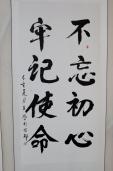 不忘初心
牢记使命